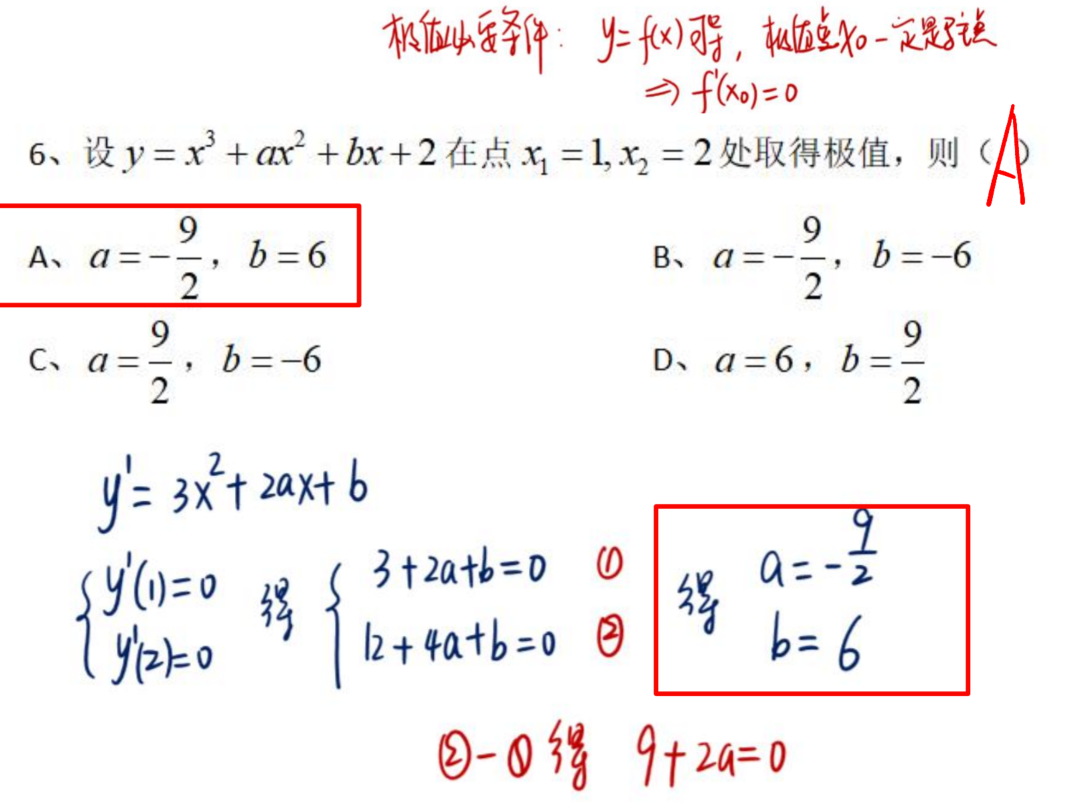 极值必要条件： y=f(x)可导，极值点x₀一定是驻点
⇒ f'(x₀)=0
6、设 y = x³ + ax² + bx + 2 在点 x₁ = 1, x₂ = 2 处取得极值，则（A）
A、 a = -9/2， b = 6
B、 a = -9/2， b = -6
C、 a = 9/2， b = -6
D、 a = 6， b = 9/2
y' = 3x² + 2ax + b
{ y'(1)=0 得 { 3+2a+b=0 ① 得 a = -9/2
y'(2)=0 12+4a+b=0 ② b = 6
②-①得 9+2a=0